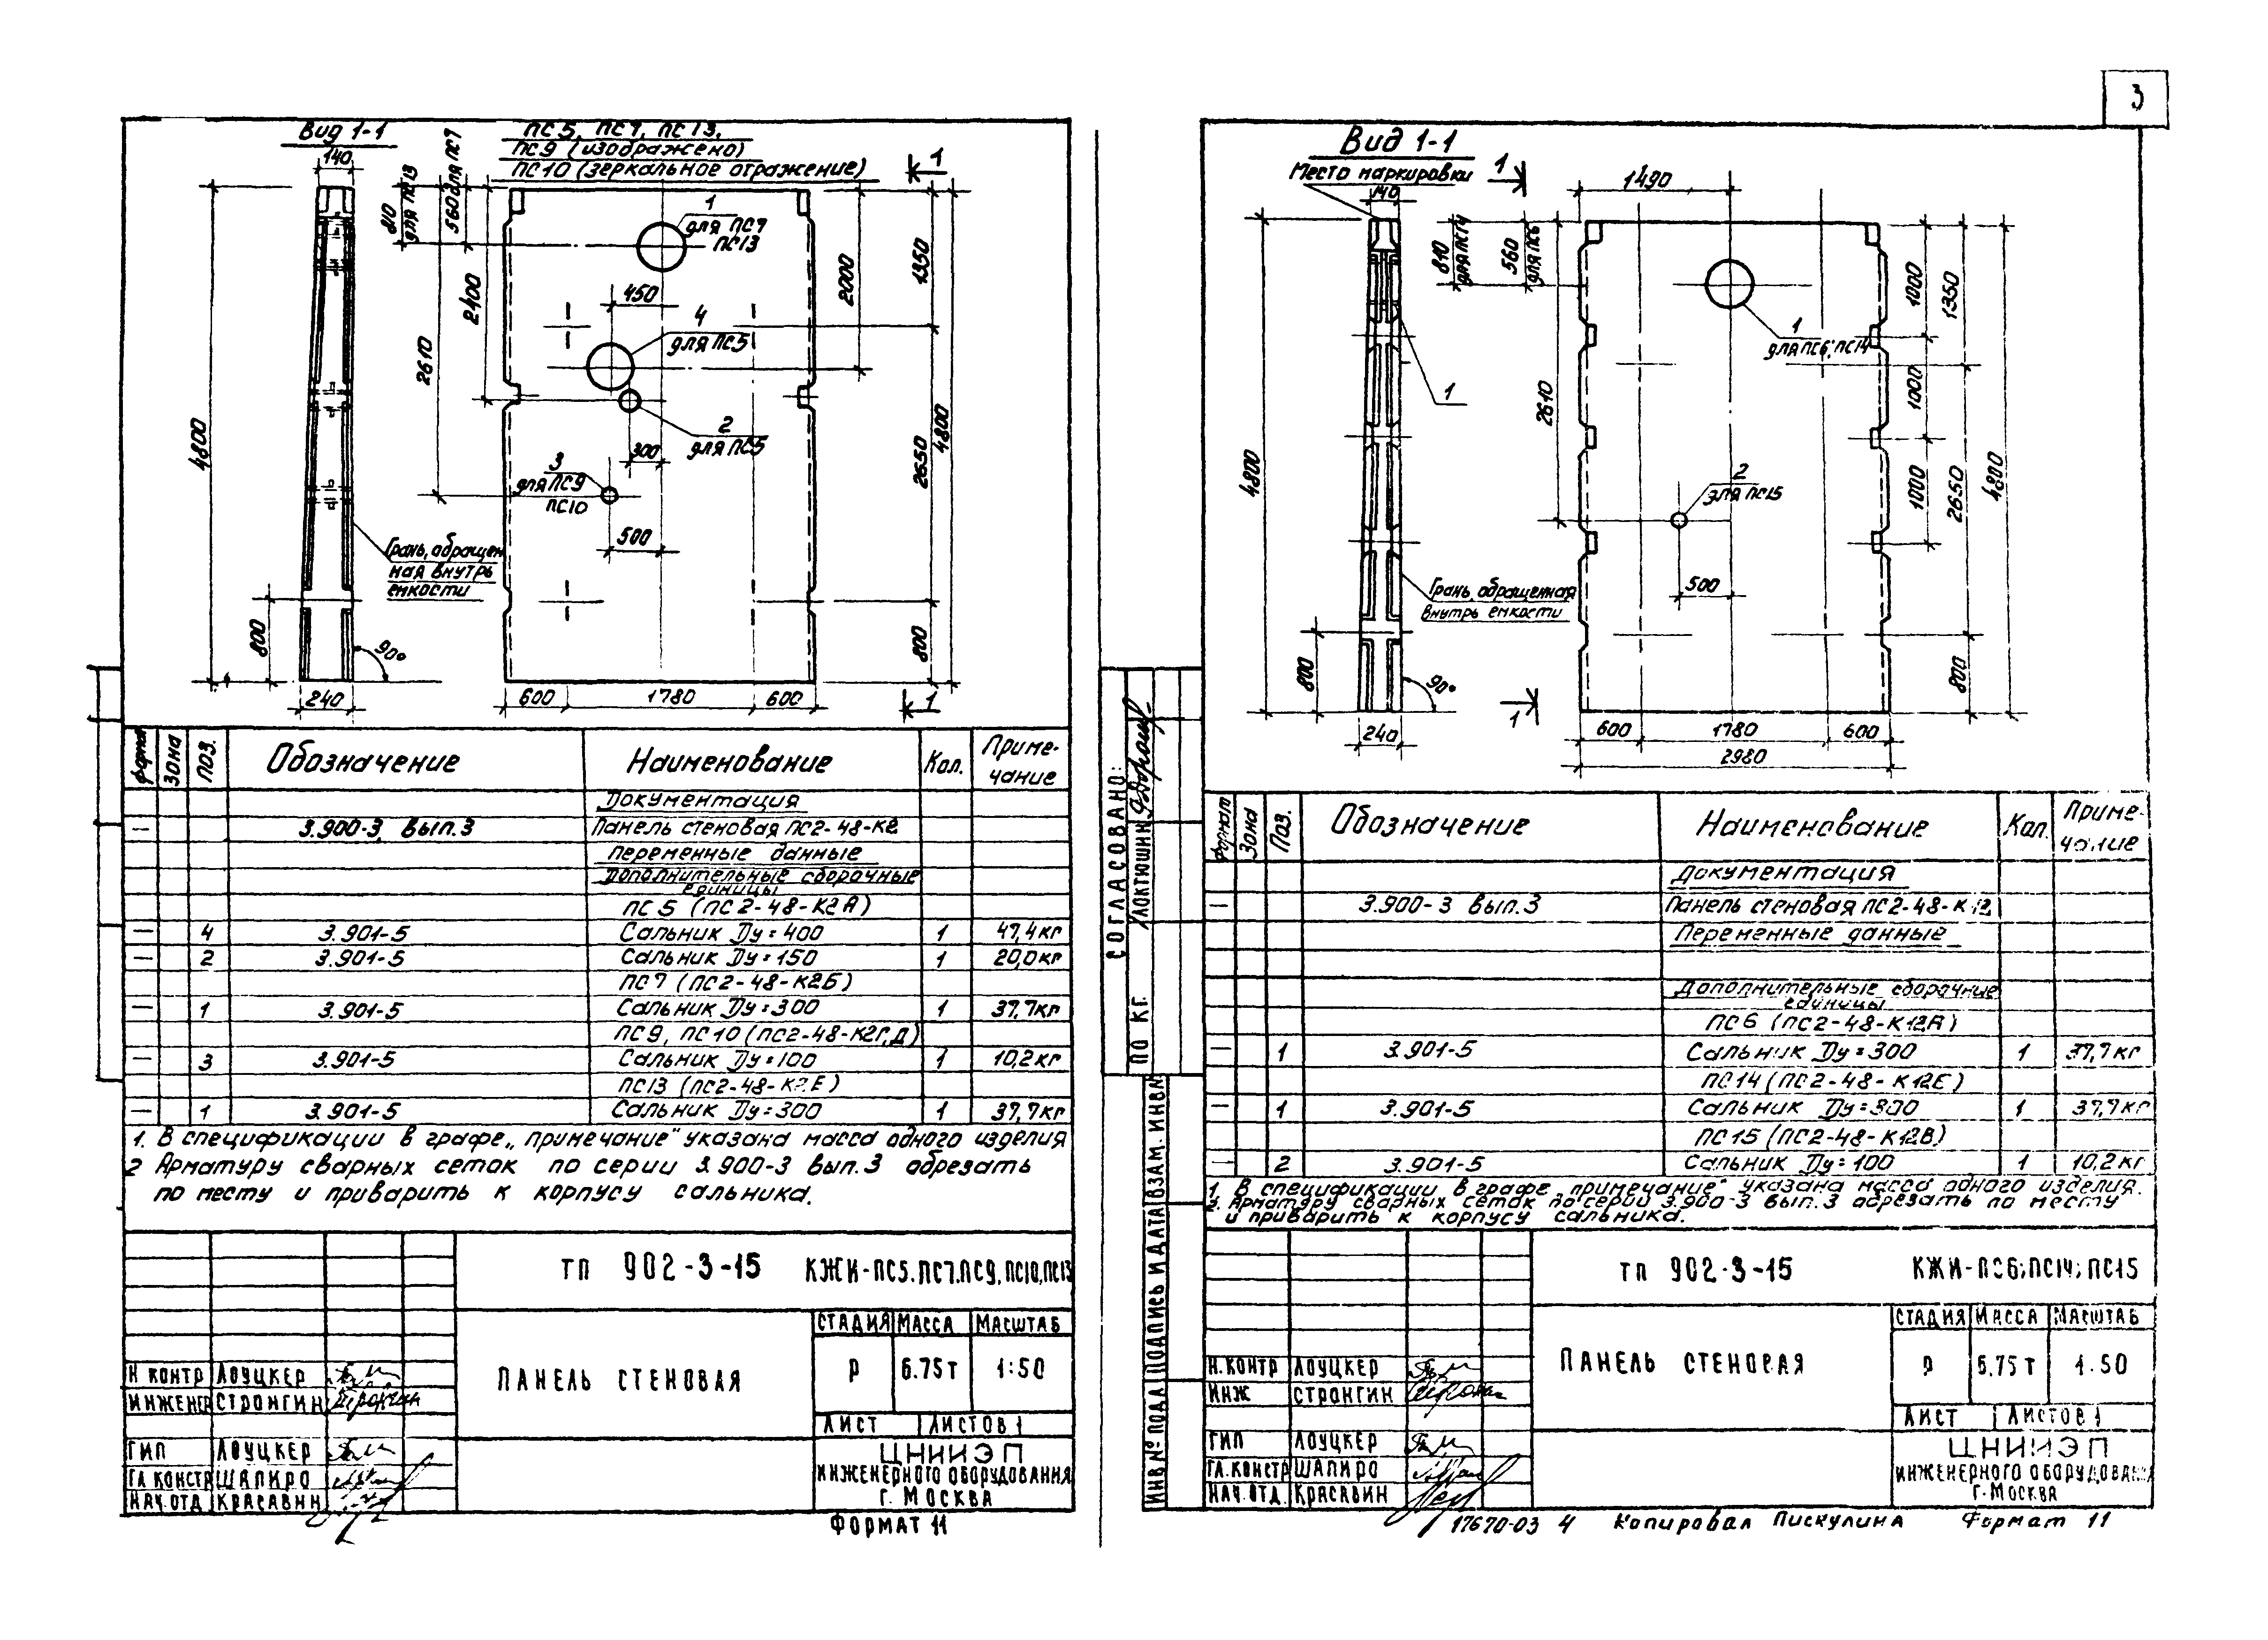 3
Вид 1-1
ПС5, ПС7, ПС13,
ПС9 (изображено)
ПС10 (зеркальное отражение)
140
810
для ПС13
560 для ПС7
1
1
для ПС7
ПС13
4800
2610
2400
450
4
для ПС5
2
для ПС5
300
3
для ПС9
ПС10
500
2000
1350
2650
4800
800
Грань, обращен
ная внутрь
емкости
800
90°
240
600
1780
600
1
формат
Зона
Поз.
Обозначение
Наименование
Кол.
Приме-
чание
Документация
— 3.900-3, вып.3 Панель стеновая ПС2-48-К2
Переменные данные
Дополнительные сборочные
единицы
ПС 5 (ПС 2-48-К2А)
— 4 3.901-5 Сальник Ду=400 1 47,4кг
— 2 3.901-5 Сальник Ду=150 1 20,0кг
ПС7 (ПС2-48-К2Б)
— 1 3.901-5 Сальник Ду=300 1 37,7кг
ПС9, ПС10 (ПС2-48-К2Г,Д)
— 3 3.901-5 Сальник Ду=100 1 10,2кг
ПС13 (ПС2-48-К2Е)
— 1 3.901-5 Сальник Ду=300 1 37,7кг
1. В спецификации в графе „примечание" указана масса одного изделия
2 Арматуру сварных сеток по серии 3.900-3 вып.3 обрезать
по месту и приварить к корпусу сальника.
ТП 902-3-15 КЖИ-ПС5.ПС7.ПС9, ПС10,ПС13
ПАНЕЛЬ СТЕНОВАЯ
СТАДИЯ МАССА МАСШТАБ
Р 6.75т 1:50
ЛИСТ ЛИСТОВ 1
Н КОНТР ЛОУЦКЕР
ИНЖЕНЕР СТРОНГИН
ГИП ЛОУЦКЕР
ГЛ.КОНСТР ШАПИРО
НАЧ.ОТД КРАСАВИН
ЦНИИЭП
ИНЖЕНЕРНОГО ОБОРУДОВАНИЯ
Г. МОСКВА
ФОРМАТ 11
Вид 1-1
Место маркировки
140
1
1490
810
для ПС14
560
для ПС6
4800
2610
1
1
для ПС6, ПС14
2
для ПС15
500
1000
1000
1000
1350
2650
4800
800
Грань, обращенная
внутрь емкости
800
90°
240
1
600
1780
600
2980
СОГЛАСОВАНО:
ЛОКТЮШИН
ПО КГ.
ВЗАМ. ИНВ№
ПОДПИСЬ И ДАТА
ИНВ№ ПОДЛ
формат
Зона
Поз.
Обозначение
Наименование
Кол.
Приме-
чание
Документация
— 3.900-3 вып.3 Панель стеновая ПС2-48-К12
Переменные данные
Дополнительные сборочные
единицы
ПС6 (ПС2-48-К12А)
— 1 3.901-5 Сальник Ду=300 1 37,7кг
ПС14 (ПС2-48-К12Е)
— 1 3.901-5 Сальник Ду=300 1 37,7кг
ПС15 (ПС2-48-К12В)
— 2 3.901-5 Сальник Ду=100 1 10,2кг
1. В спецификации в графе „примечание" указана масса одного изделия.
2. Арматуру сварных сеток по серии 3.900-3 вып.3 обрезать по месту
и приварить к корпусу сальника.
ТП 902-3-15 КЖИ-ПС6; ПС14; ПС15
ПАНЕЛЬ СТЕНОВАЯ
СТАДИЯ МАССА МАСШТАБ
Р 6.75 Т 1:50
ЛИСТ ЛИСТОВ 1
Н.КОНТР ЛОУЦКЕР
ИНЖ СТРОНГИН
ГИП ЛОУЦКЕР
ГЛ.КОНСТР ШАПИРО
НАЧ.ОТД. КРАСАВИН
ЦНИИЭП
ИНЖЕНЕРНОГО ОБОРУДОВАНИЯ
Г. МОСКВА
17670-03 4 Копировал Пискулина Формат 11